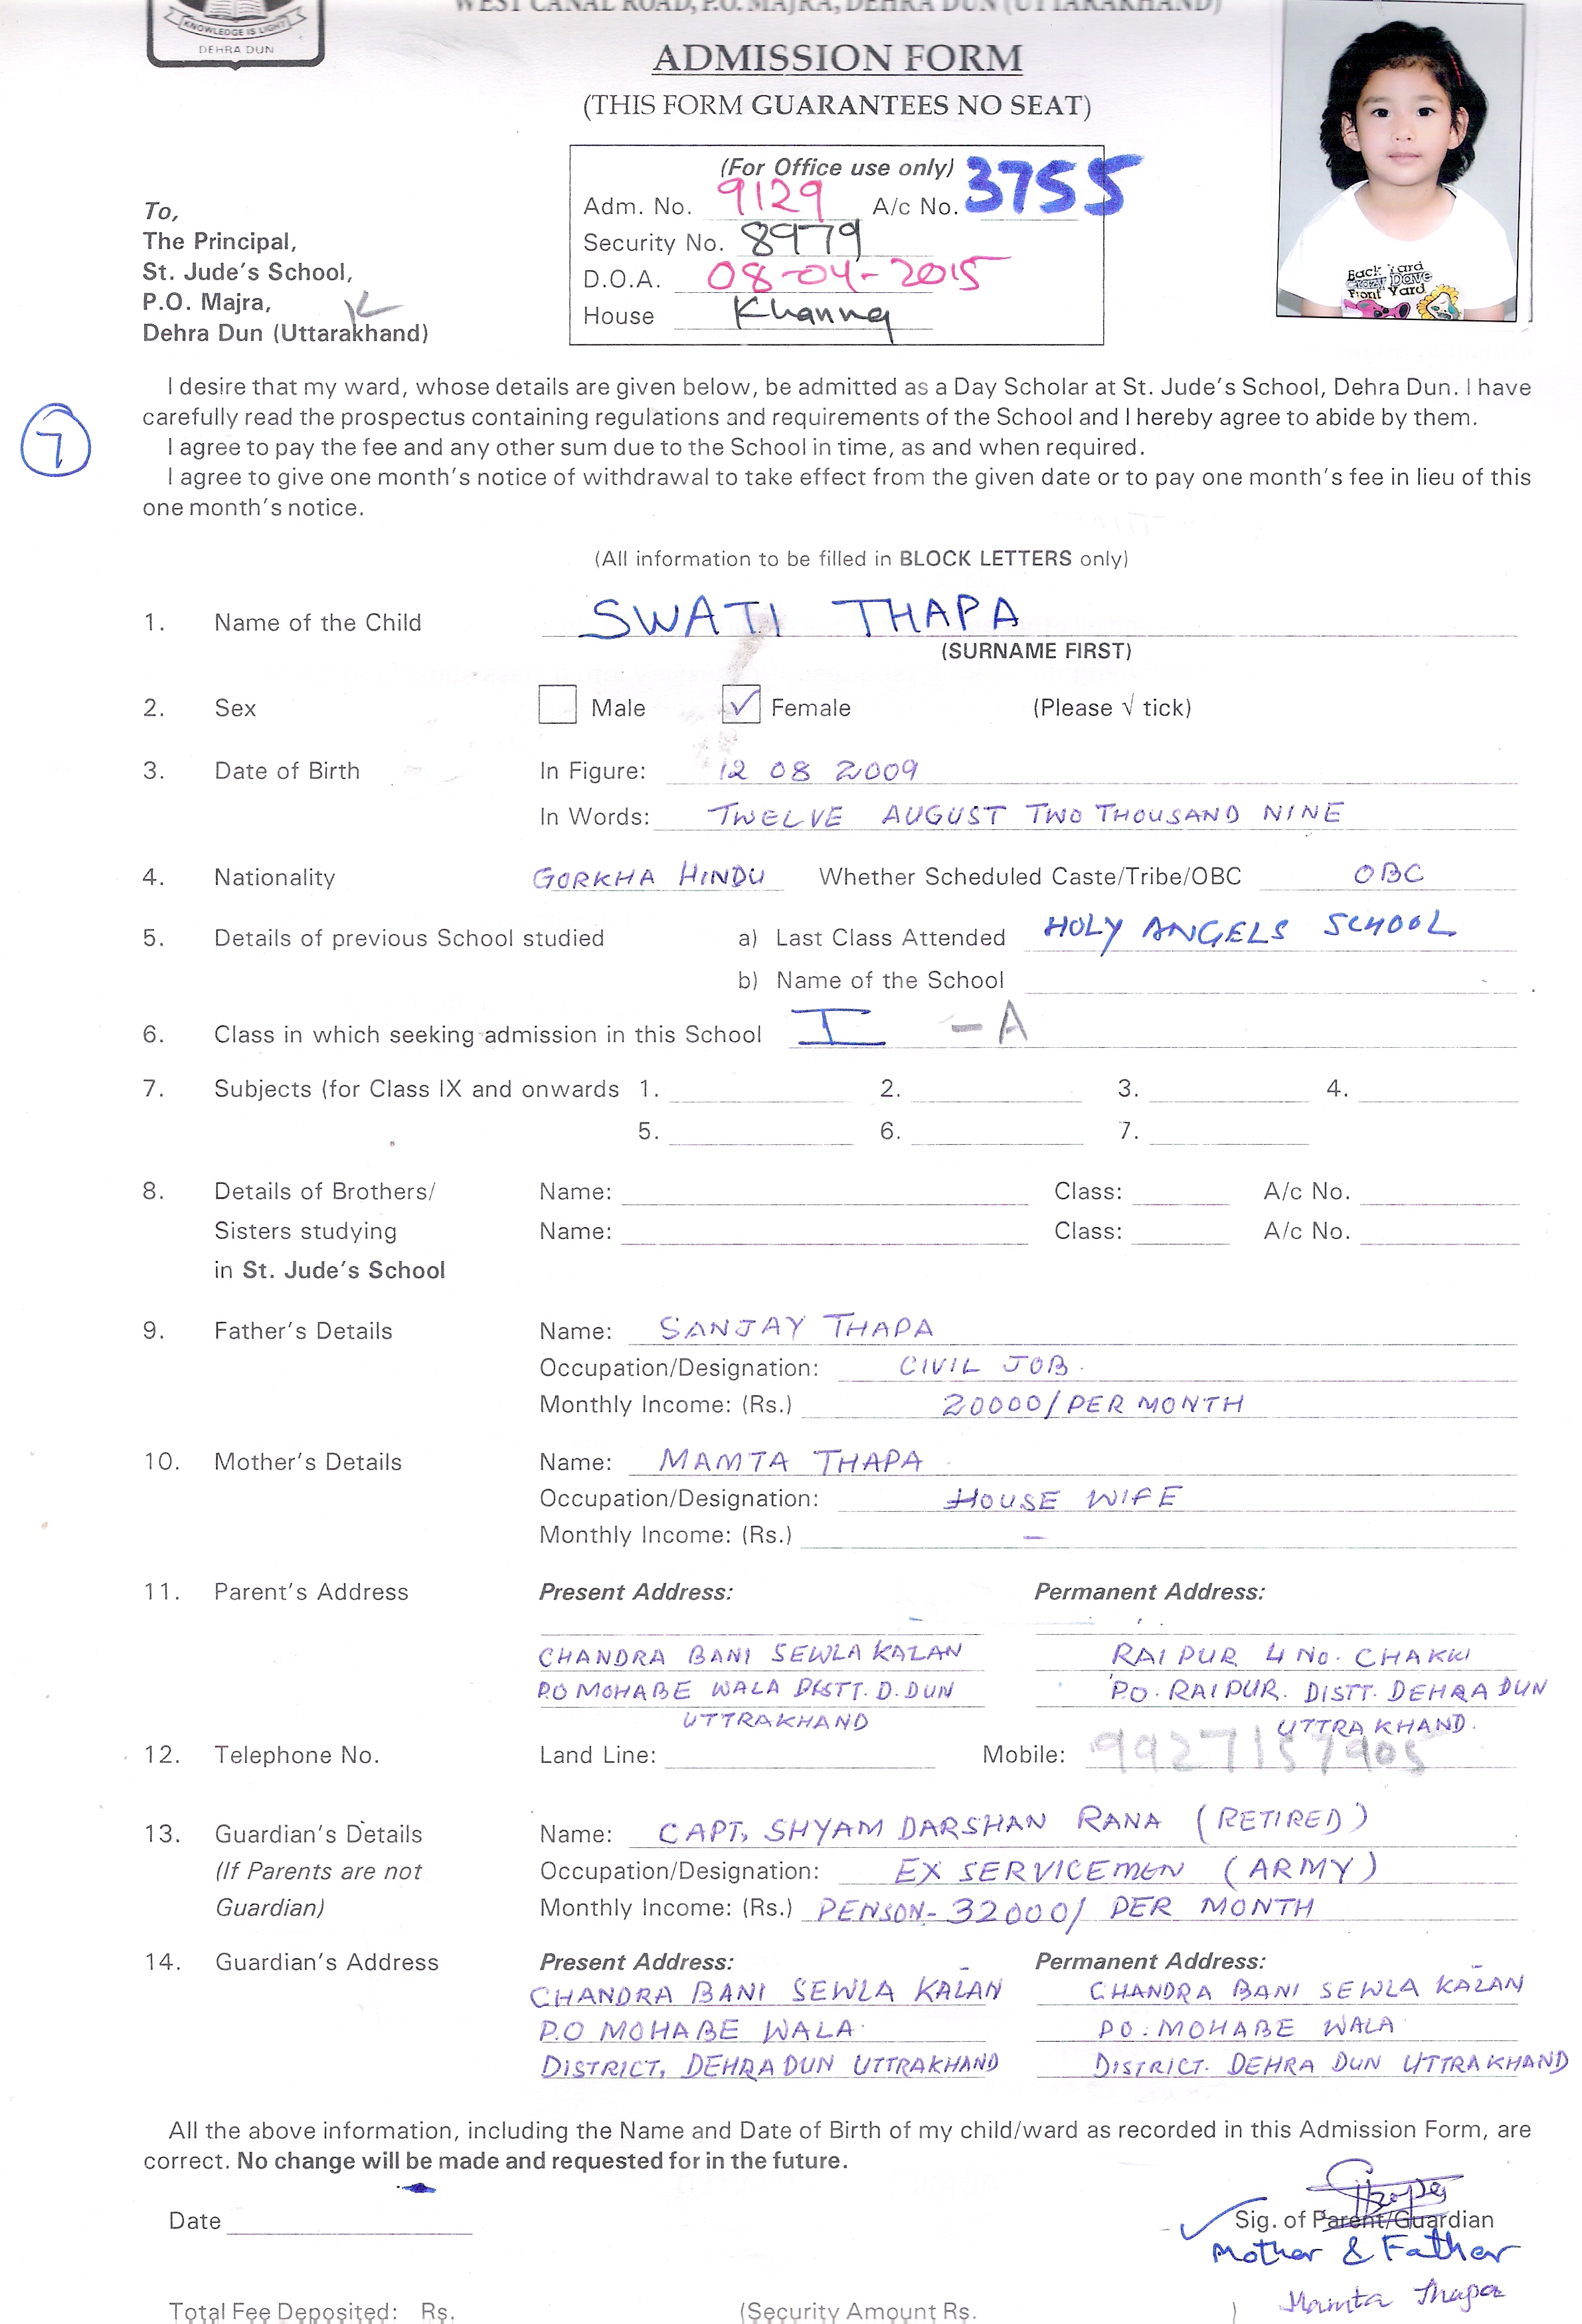 WEST CANAL ROAD, P.O. MAJRA, DEHRA DUN (UTTARAKHAND)
KNOWLEDGE IS LIGHT
DEHRA DUN
ADMISSION FORM
(THIS FORM GUARANTEES NO SEAT)
(For Office use only)
Adm. No. 9129 A/c No. 3755
Security No. 8979
D.O.A. 08-04-2015
House Khanna
To,
The Principal,
St. Jude's School,
P.O. Majra,
Dehra Dun (Uttarakhand)
Back Yard
Crazy Dave
Front Yard
I desire that my ward, whose details are given below, be admitted as a Day Scholar at St. Jude's School, Dehra Dun. I have
carefully read the prospectus containing regulations and requirements of the School and I hereby agree to abide by them.
7
I agree to pay the fee and any other sum due to the School in time, as and when required.
I agree to give one month's notice of withdrawal to take effect from the given date or to pay one month's fee in lieu of this
one month's notice.
(All information to be filled in BLOCK LETTERS only)
1. Name of the Child SWATI THAPA
(SURNAME FIRST)
2. Sex Male ✓ Female (Please √ tick)
3. Date of Birth In Figure: 12 08 2009
In Words: TWELVE AUGUST TWO THOUSAND NINE
4. Nationality GORKHA HINDU Whether Scheduled Caste/Tribe/OBC OBC
5. Details of previous School studied a) Last Class Attended HOLY ANGELS SCHOOL
b) Name of the School
6. Class in which seeking admission in this School I - A
7. Subjects (for Class IX and onwards 1. 2. 3. 4.
5. 6. 7.
8. Details of Brothers/ Name: Class: A/c No.
Sisters studying Name: Class: A/c No.
in St. Jude's School
9. Father's Details Name: SANJAY THAPA
Occupation/Designation: CIVIL JOB.
Monthly Income: (Rs.) 20000/ PER MONTH
10. Mother's Details Name: MAMTA THAPA
Occupation/Designation: HOUSE WIFE
Monthly Income: (Rs.) -
11. Parent's Address Present Address: Permanent Address:
CHANDRA BANI SEWLA KALAN RAIPUR 4 NO. CHAKKI
P.O MOHABE WALA DISTT. D.DUN P.O. RAIPUR. DISTT. DEHRA DUN
UTTRAKHAND UTTRAKHAND.
12. Telephone No. Land Line: Mobile: 9927157905
13. Guardian's Details Name: CAPT. SHYAM DARSHAN RANA (RETIRED)
(If Parents are not Occupation/Designation: EX SERVICEMEN (ARMY)
Guardian) Monthly Income: (Rs.) PENSON- 32000/ PER MONTH
14. Guardian's Address Present Address: Permanent Address:
CHANDRA BANI SEWLA KALAN CHANDRA BANI SEWLA KALAN
P.O MOHABE WALA PO. MOHABE WALA
DISTRICT, DEHRA DUN UTTRAKHAND DISTRICT. DEHRA DUN UTTRAKHAND
All the above information, including the Name and Date of Birth of my child/ward as recorded in this Admission Form, are
correct. No change will be made and requested for in the future.
Thapa
Date Sig. of Parent/Guardian
Mother & Father
Mamta Thapa
Total Fee Deposited: Rs. (Security Amount Rs. )